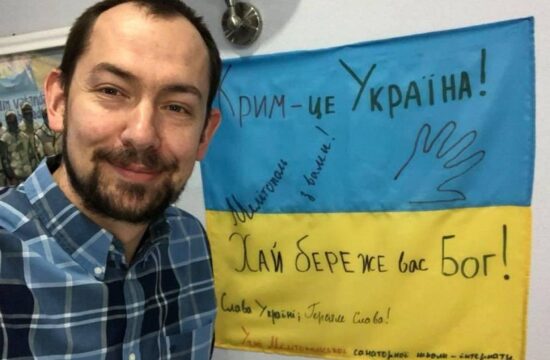 Крим - це Україна!
Мелітополь
з вами!
Хай береже вас Бог!
Слава Україні; Героям Слава!
санаторної школи - інтернати